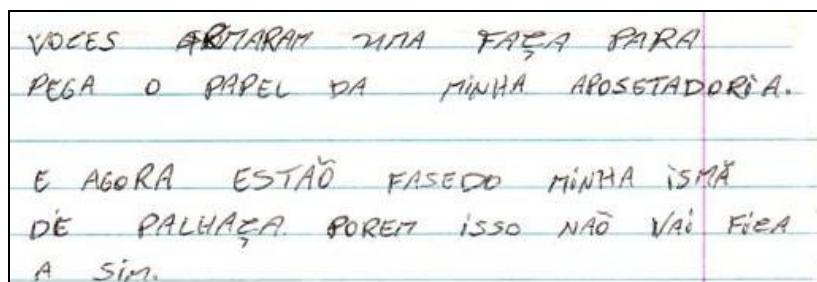 VOCES ARMARAM UMA FAÇA PARA
PEGA O PAPEL DA MINHA APOSETADORIA.
E AGORA ESTAÕ FASEDO MINHA ISMÃ
DE PALHAÇA. POREM ISSO NAÕ VAI FICA
A SIM.